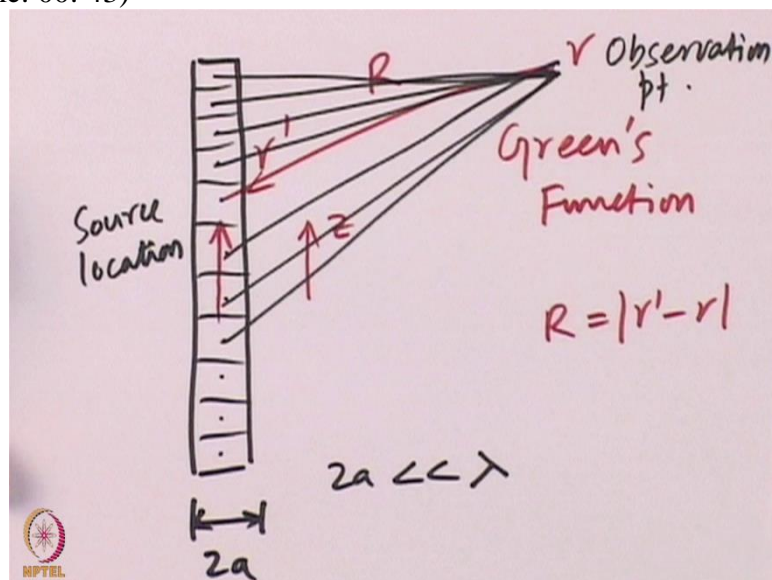 R
r Observation
pt.
r'
Green's
Function
Source
location
z
R = |r'-r|
2a << λ
2a
NPTEL